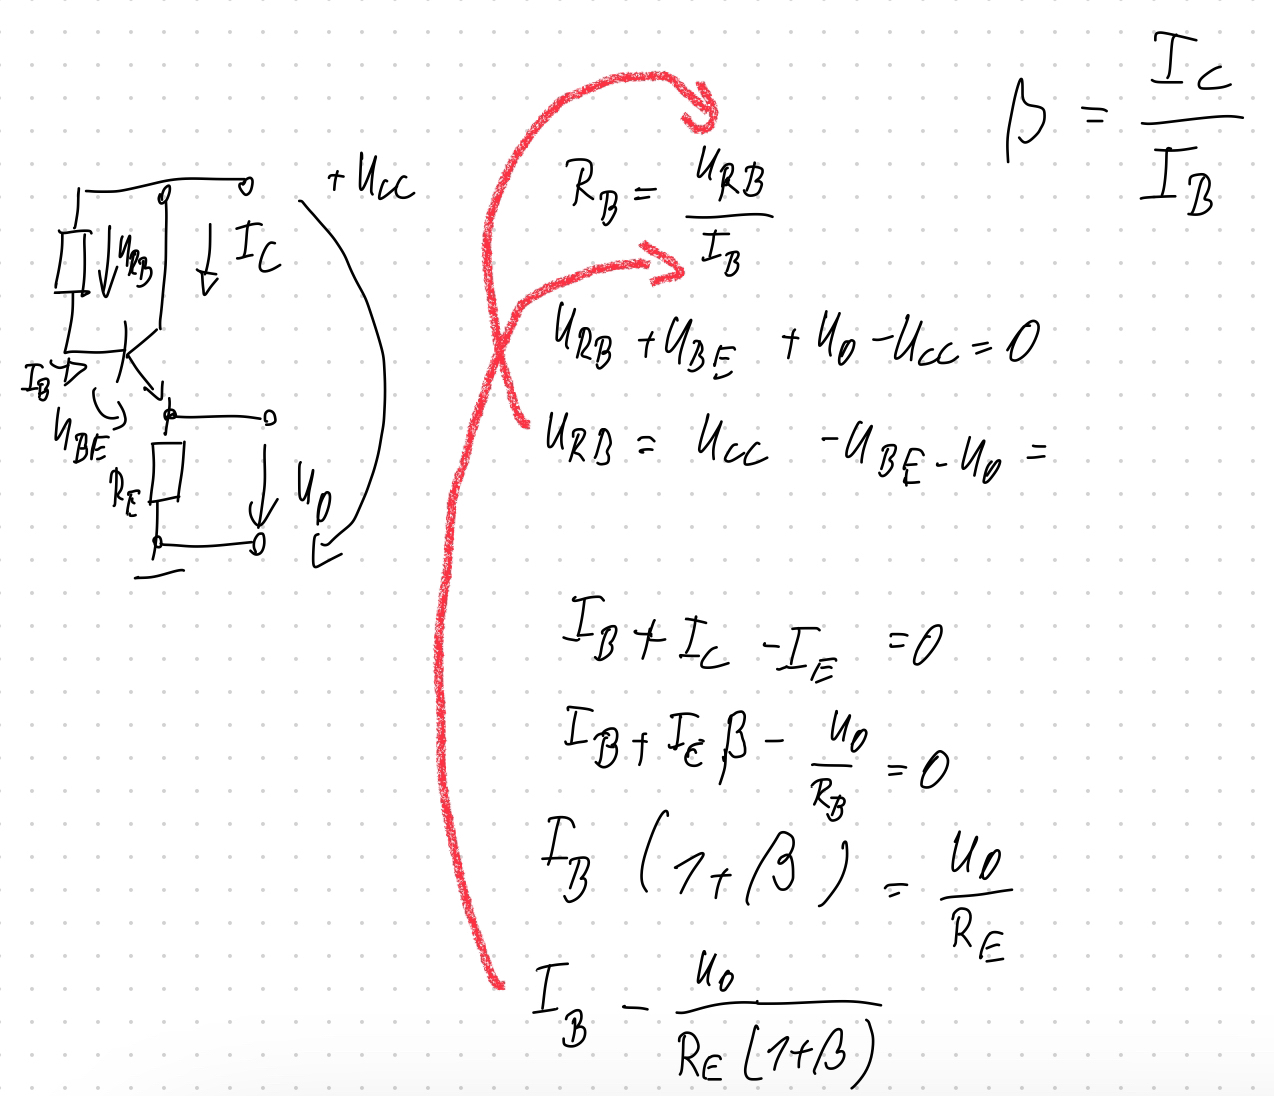 β = I_C / I_B
+ U_CC
U_RB
I_C
I_B
U_BE
R_E
U_0
R_B = U_RB / I_B
U_RB + U_BE + U_0 - U_CC = 0
U_RB = U_CC - U_BE - U_0 =
I_B + I_C - I_E = 0
I_B + I_C β - U_0 / R_B = 0
I_B (1 + β) = U_0 / R_E
I_B - U_0 / R_E (1+β)